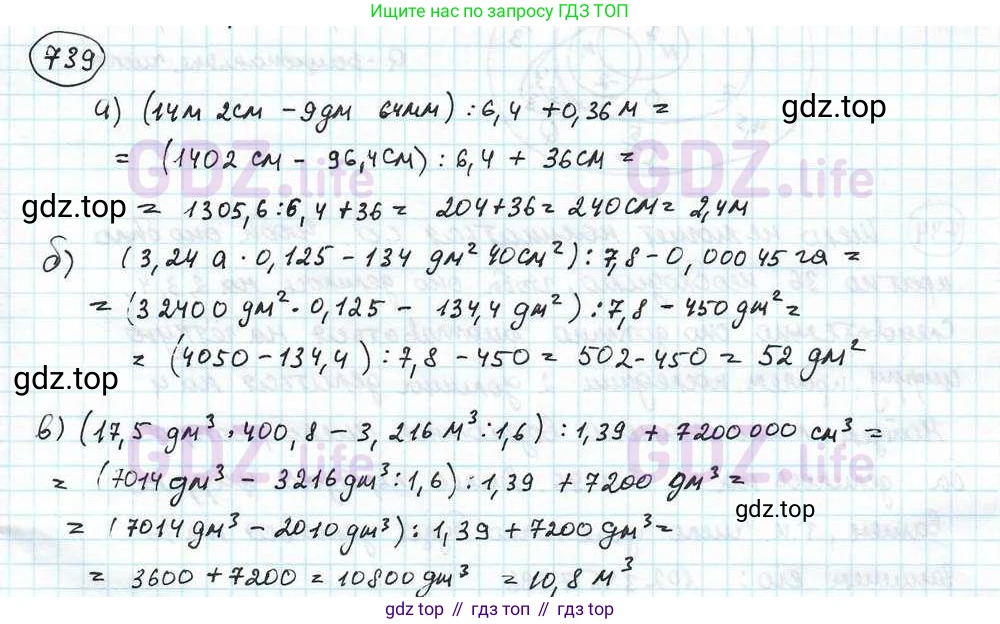 Ищите нас по запросу ГДЗ ТОП
739
а) (14м 2см - 9дм 64мм) : 6,4 + 0,36 м =
gdz.top
= (1402 см - 96,4см) : 6,4 + 36см =
GDZ.life
GDZ.life
gdz.top
= 1305,6 : 6,4 + 36 = 204 + 36 = 240см = 2,4м
б) (3,24 а · 0,125 - 134 дм² 40см²) : 7,8 - 0,00045 га =
= (32400 дм² · 0,125 - 134,4 дм²) : 7,8 - 450 дм² =
= (4050 - 134,4) : 7,8 - 450 = 502 - 450 = 52 дм²
gdz.top
в) (17,5 дм³ · 400,8 - 3,216 м³ : 1,6) : 1,39 + 7200000 см³ =
GDZ.life
GDZ.life
= (7014 дм³ - 3216 дм³ : 1,6) : 1,39 + 7200 дм³ =
gdz.top
= (7014 дм³ - 2010 дм³) : 1,39 + 7200 дм³ =
= 3600 + 7200 = 10800 дм³ = 10,8 м³
gdz.top // гдз топ // gdz.top